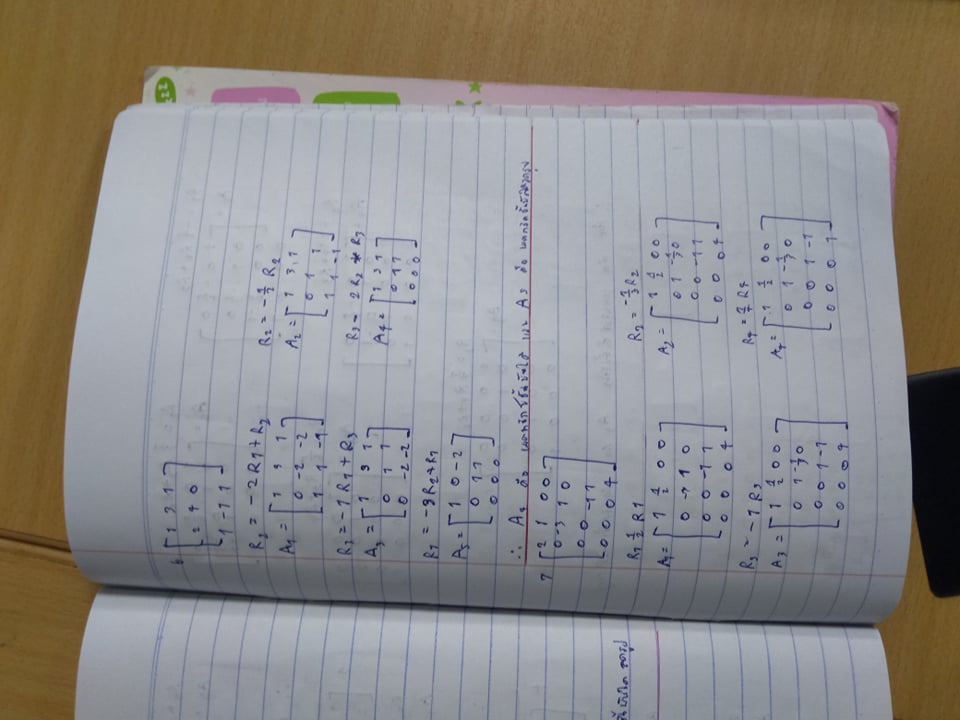 6
[1 3 1
2 4 0
1 -1 1]
R2 = -2R1+R2
A1 = [1 3 1
0 -2 -2
1 1 -1]
R2 = -1/2 R2
A2 = [1 3 1
0 1 1
1 1 -1]
R3 = -1 R1 + R3
A3 = [1 3 1
0 1 1
0 -2 -2]
R3 = 2 R2 + R3
A4 = [1 3 1
0 1 1
0 0 0]
R1 = -3R2+R1
A5 = [1 0 -2
0 1 1
0 0 0]
∴ A4 คือ เมทริกซ์ขั้นบันได และ A5 คือ เมทริกซ์ขั้นบันไดลดรูป
7
[2 1 0 0
0 -3 1 0
0 0 -1 1
0 0 0 4]
R1 1/2 R1
A1 = [1 1/2 0 0
0 -3 1 0
0 0 -1 1
0 0 0 4]
R2 = -1/3 R2
A2 = [1 1/2 0 0
0 1 -1/3 0
0 0 -1 1
0 0 0 4]
R3 = -1 R3
A3 = [1 1/2 0 0
0 1 -1/3 0
0 0 1 -1
0 0 0 4]
R4 = 1/4 R4
A4 = [1 1/2 0 0
0 1 -1/3 0
0 0 1 -1
0 0 0 1]